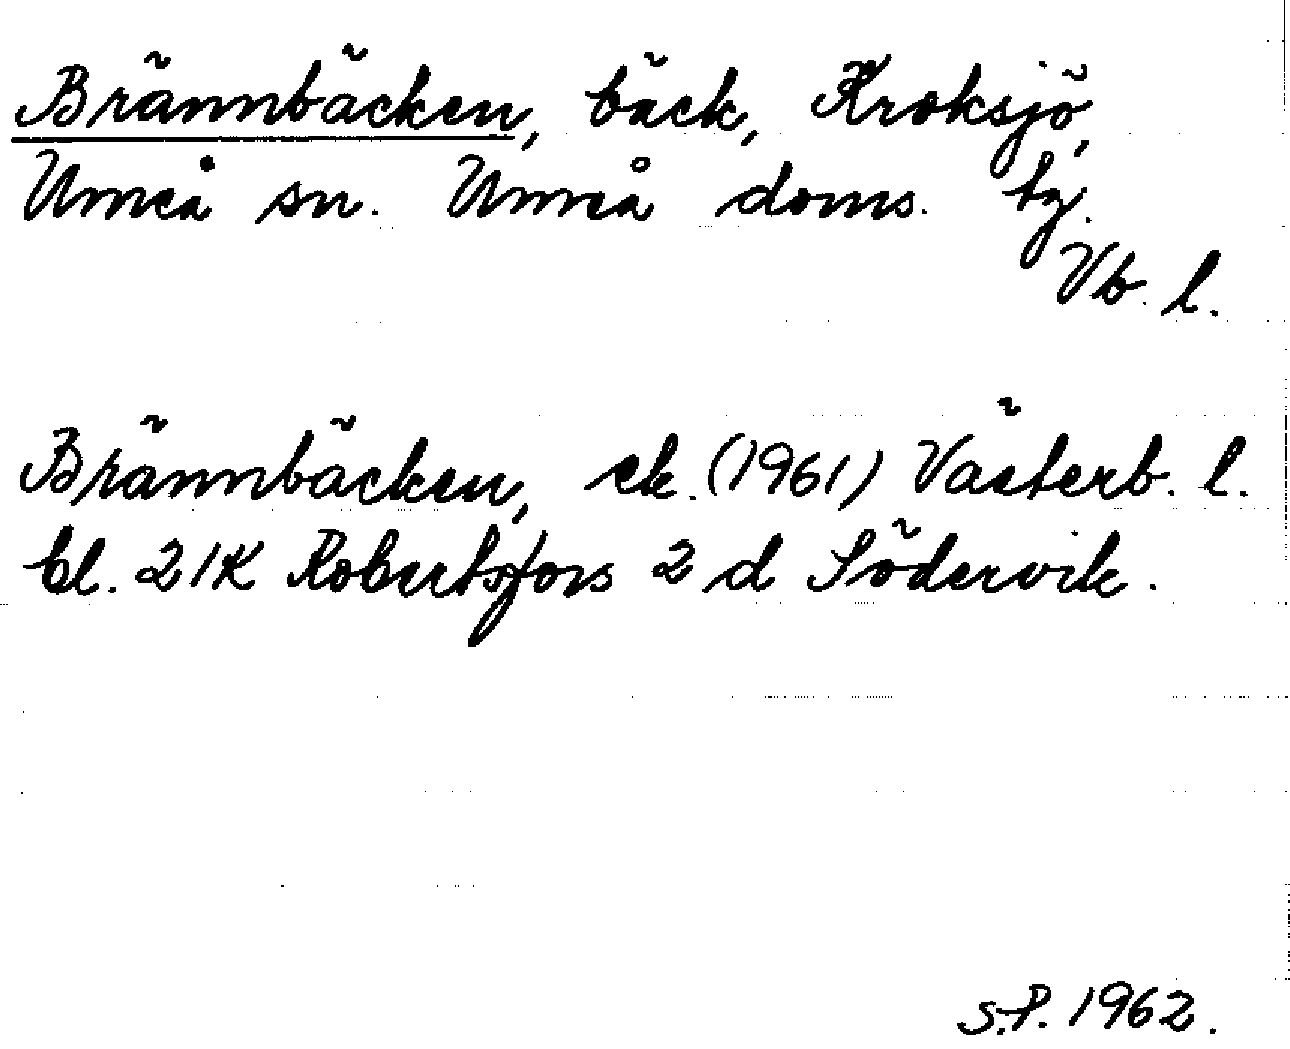 Brännbäcken, bäck, Kroksjö,
Umeå sn. Umeå doms. tg.
Vb. l.
Brännbäcken, ek. (1961) Västerb. l.
bl. 21K Robertsfors 2 d Södervik.
S.P. 1962.